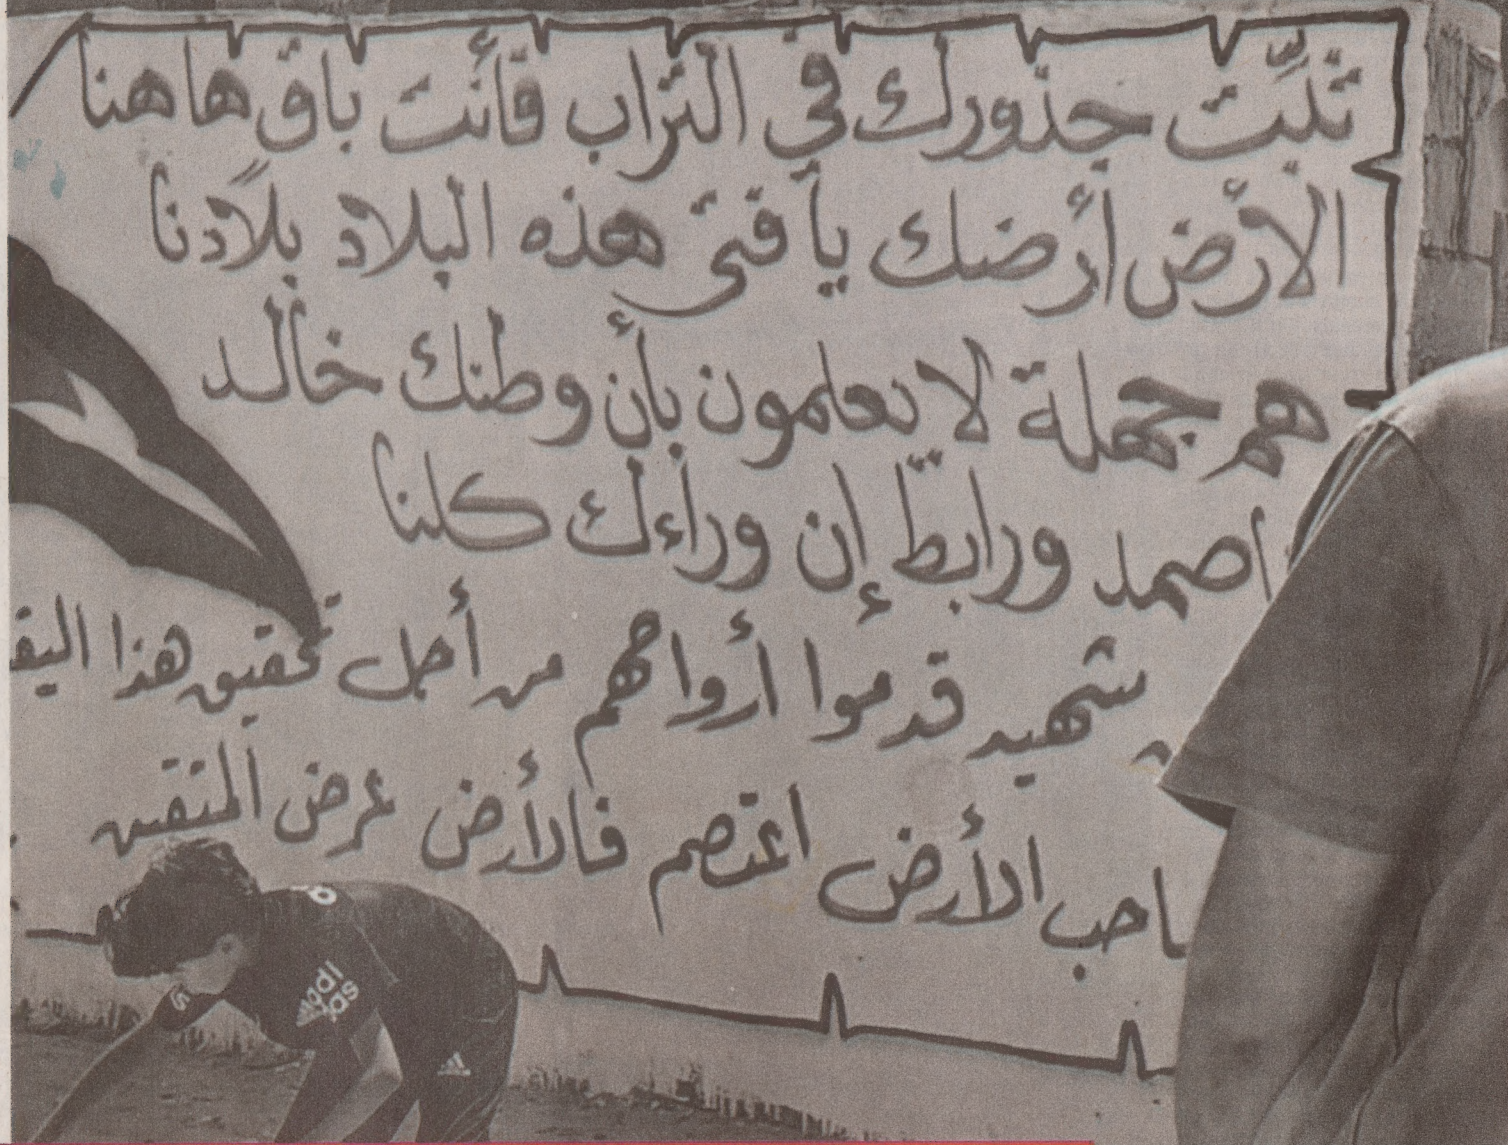 ثبّت جذورك في التراب فأنت باق هاهنا
الأرض أرضك يا فتى هذه البلاد بلادنا
هم جهلة لا يعلمون بأن وطنك خالد
اصمد ورابط إن وراءك كلنا
شهيد قدموا أرواحهم من أجل تحقيق هذا
الأرض اعتصم فالأرض عرض المتقين
adidas